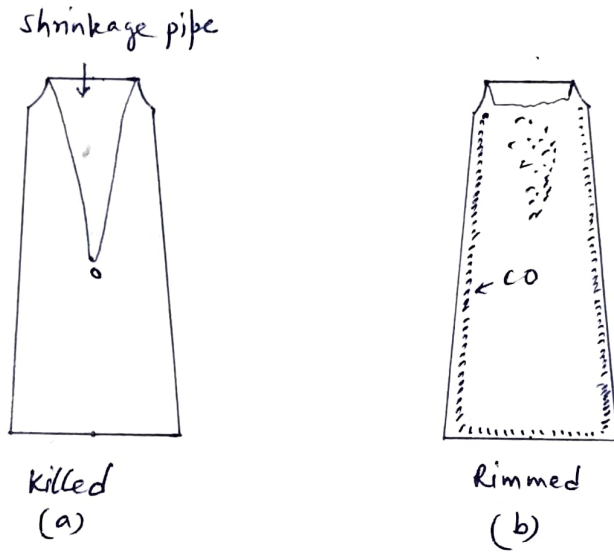 shrinkage pipe
CO
Killed
(a)
Rimmed
(b)